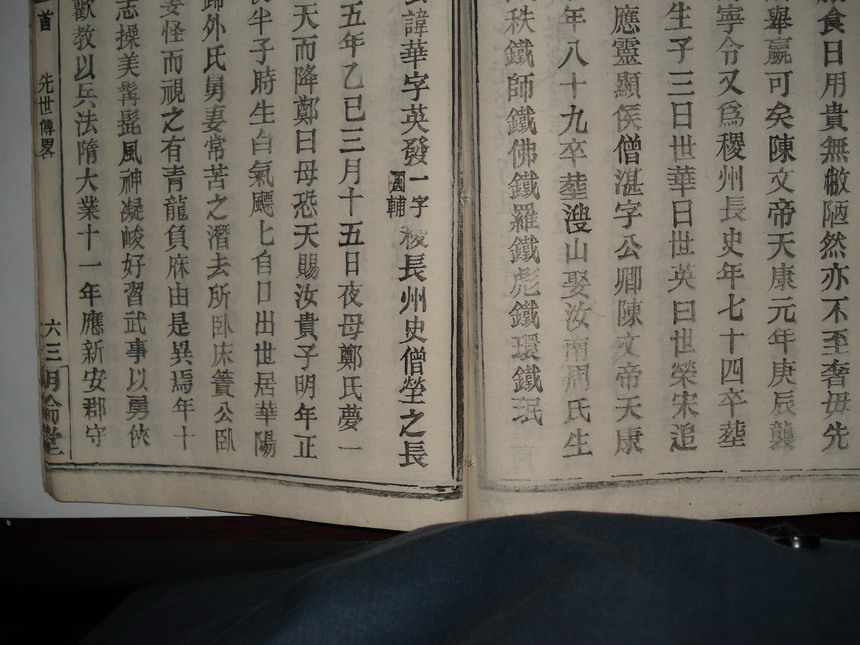 食日用貴無敝陋然亦不至奢毋先
舉贏可矣陳文帝天康元年庚辰襲
寧令又爲稷州長史年七十四卒塟
生子三日世華日世英曰世榮宋追
應靈顯侯僧湛字公卿陳文帝天康
年八十九卒塟溲山娶汝南周氏生
秩鐵師鐵佛鐵羅鐵彪鐵環鐵珉
諱華字英發一字國輔稷長州史僧塋之長
五年乙巳三月十五日夜母鄭氏夢一
天而降鄭曰母恐天賜汝貴子明年正
半子時生白氣颺七自口出世居華陽
歸外氏舅妻常苦之潛去所卧床簀公卧
妾怪而視之有青龍負床由是異焉年十
志操美髯髭風神凝峻好習武事以勇俠
歡教以兵法隋大業十一年應新安郡守
首 先世傳畧 六三 明倫堂